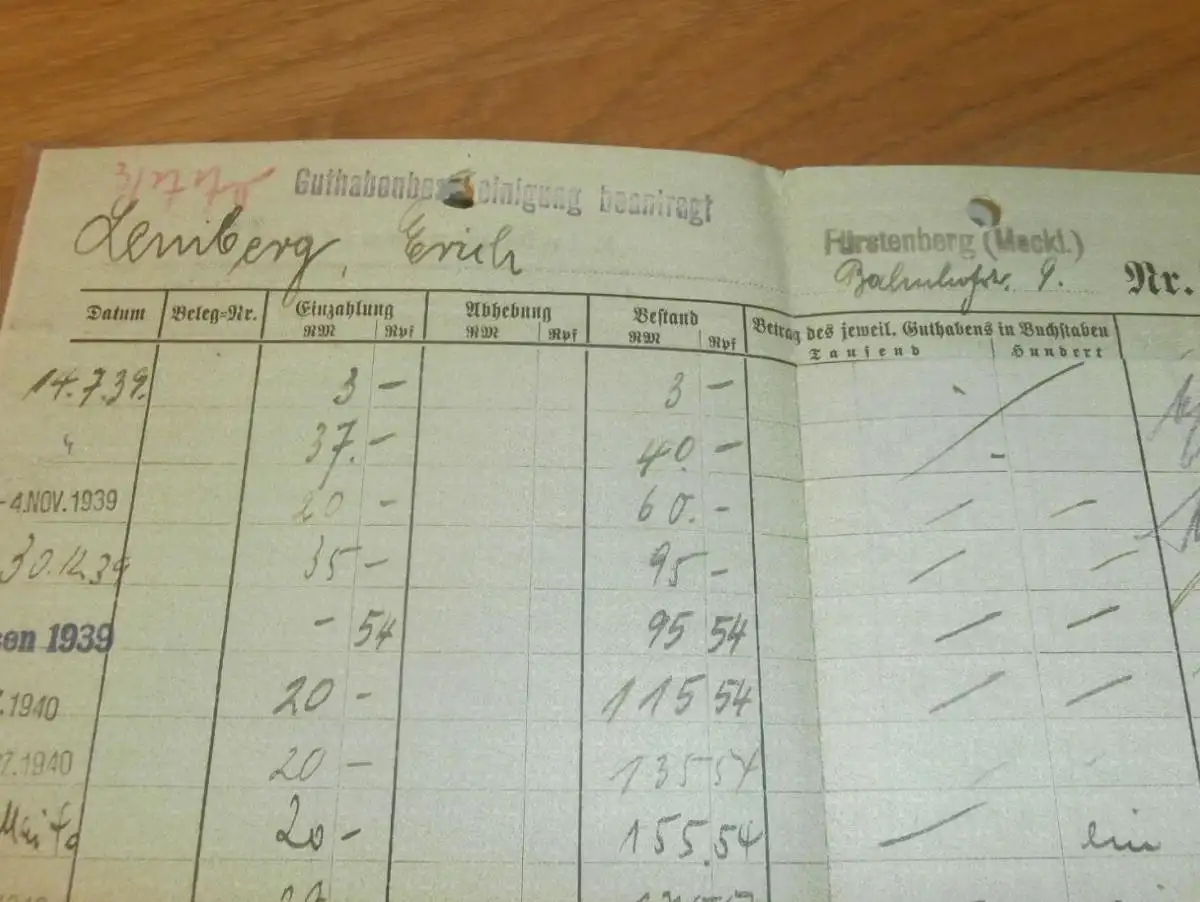 Guthabenbescheinigung beantragt
Lemberg, Erich
Fürstenberg (Meckl.)
Bahnhofstr. 9. Nr.
Datum Beleg=Nr. Einzahlung Abhebung Bestand Betrag des jeweil. Guthabens in Buchstaben
RM Rpf RM Rpf RM Rpf Tausend Hundert
14.7.39. 3 — 3 —
" 37. — 40. — –
- 4. NOV. 1939 20 - 60. -
30.12.39 35 — 95 —
sen 1939 - 54 95 54
.1940 20 - 115 54
7.1940 20 — 135 54
Mai 40 20 - 155.54 ein